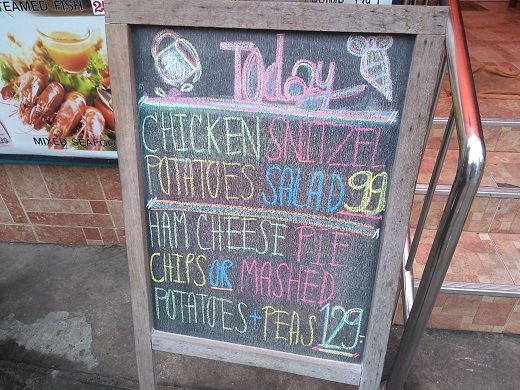 STEAMED FISH
MIXED SEAFOO
Today
CHICKEN SNITZEL
POTATOES SALAD 99
HAM CHEESE PIE
CHIPS OR MASHED
POTATOES + PEAS 129.-